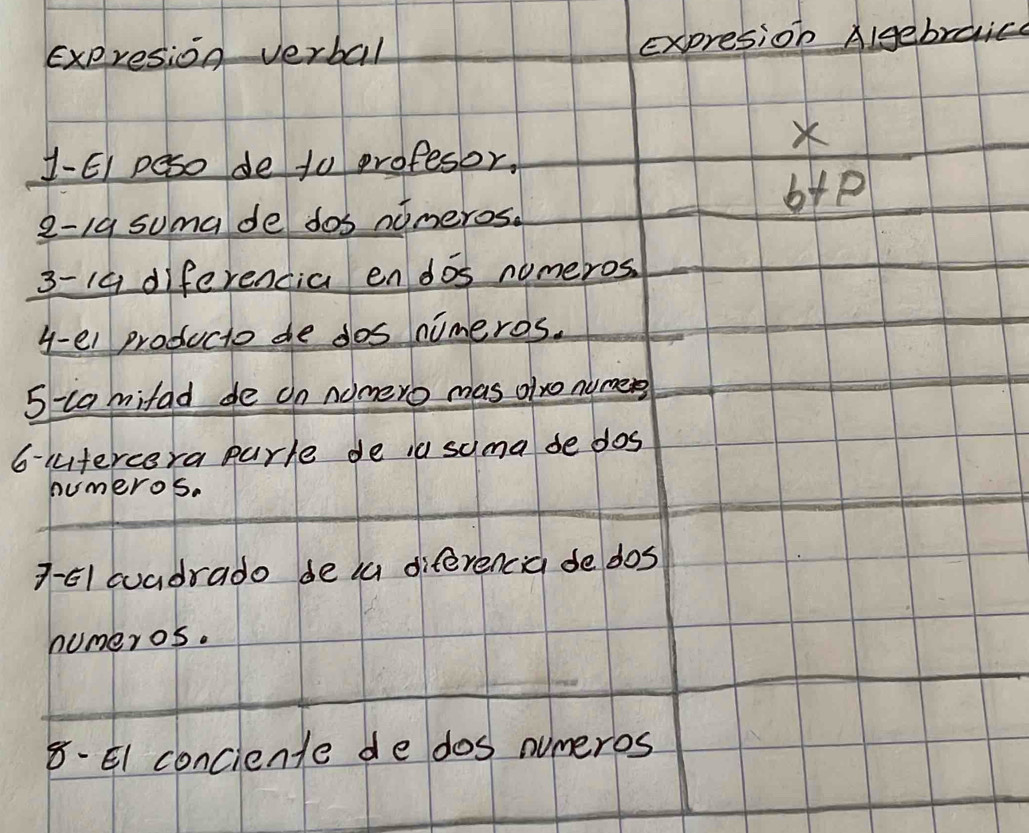 Expresión verbal
Expresión Algebraica
1-El peso de tu profesor.
x
2-la suma de dos números.
b+P
3-la diferencia en dós numeros.
4-el producto de dos números.
5-la mitad de un número mas otro numero
6-la tercera parte de la suma de dos
numeros.
7-El cuadrado de la diferencia de dos
numeros.
8-El conciente de dos numeros